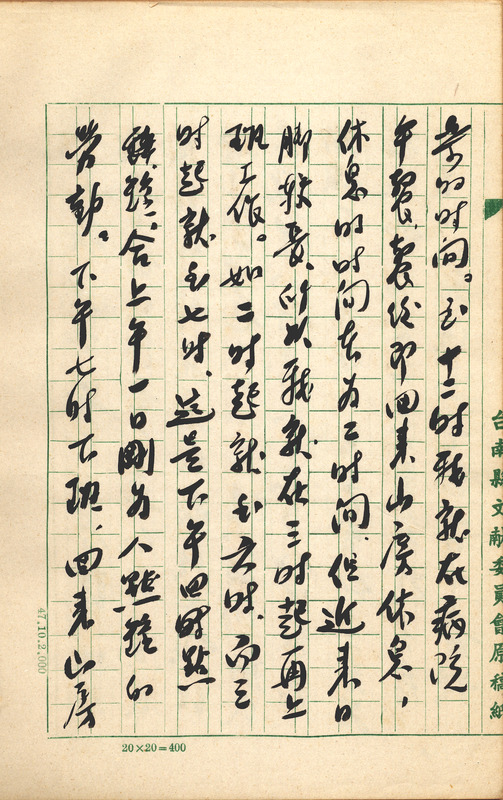 台南縣文献委員會原稿紙
的时间。至十二时我就在病院
午餐、餐後即回来山房休息，
休息的时间本为二时间、但近来日
脚較長、所以我就在三时起再上
班工作。如二时起就至六时、而三
时起就至七时、這是下午四时點
鐘、合上午一日剛为人點鐘的
劳動。下午七时下班、回来山房
20×20=400
47.10.2.000